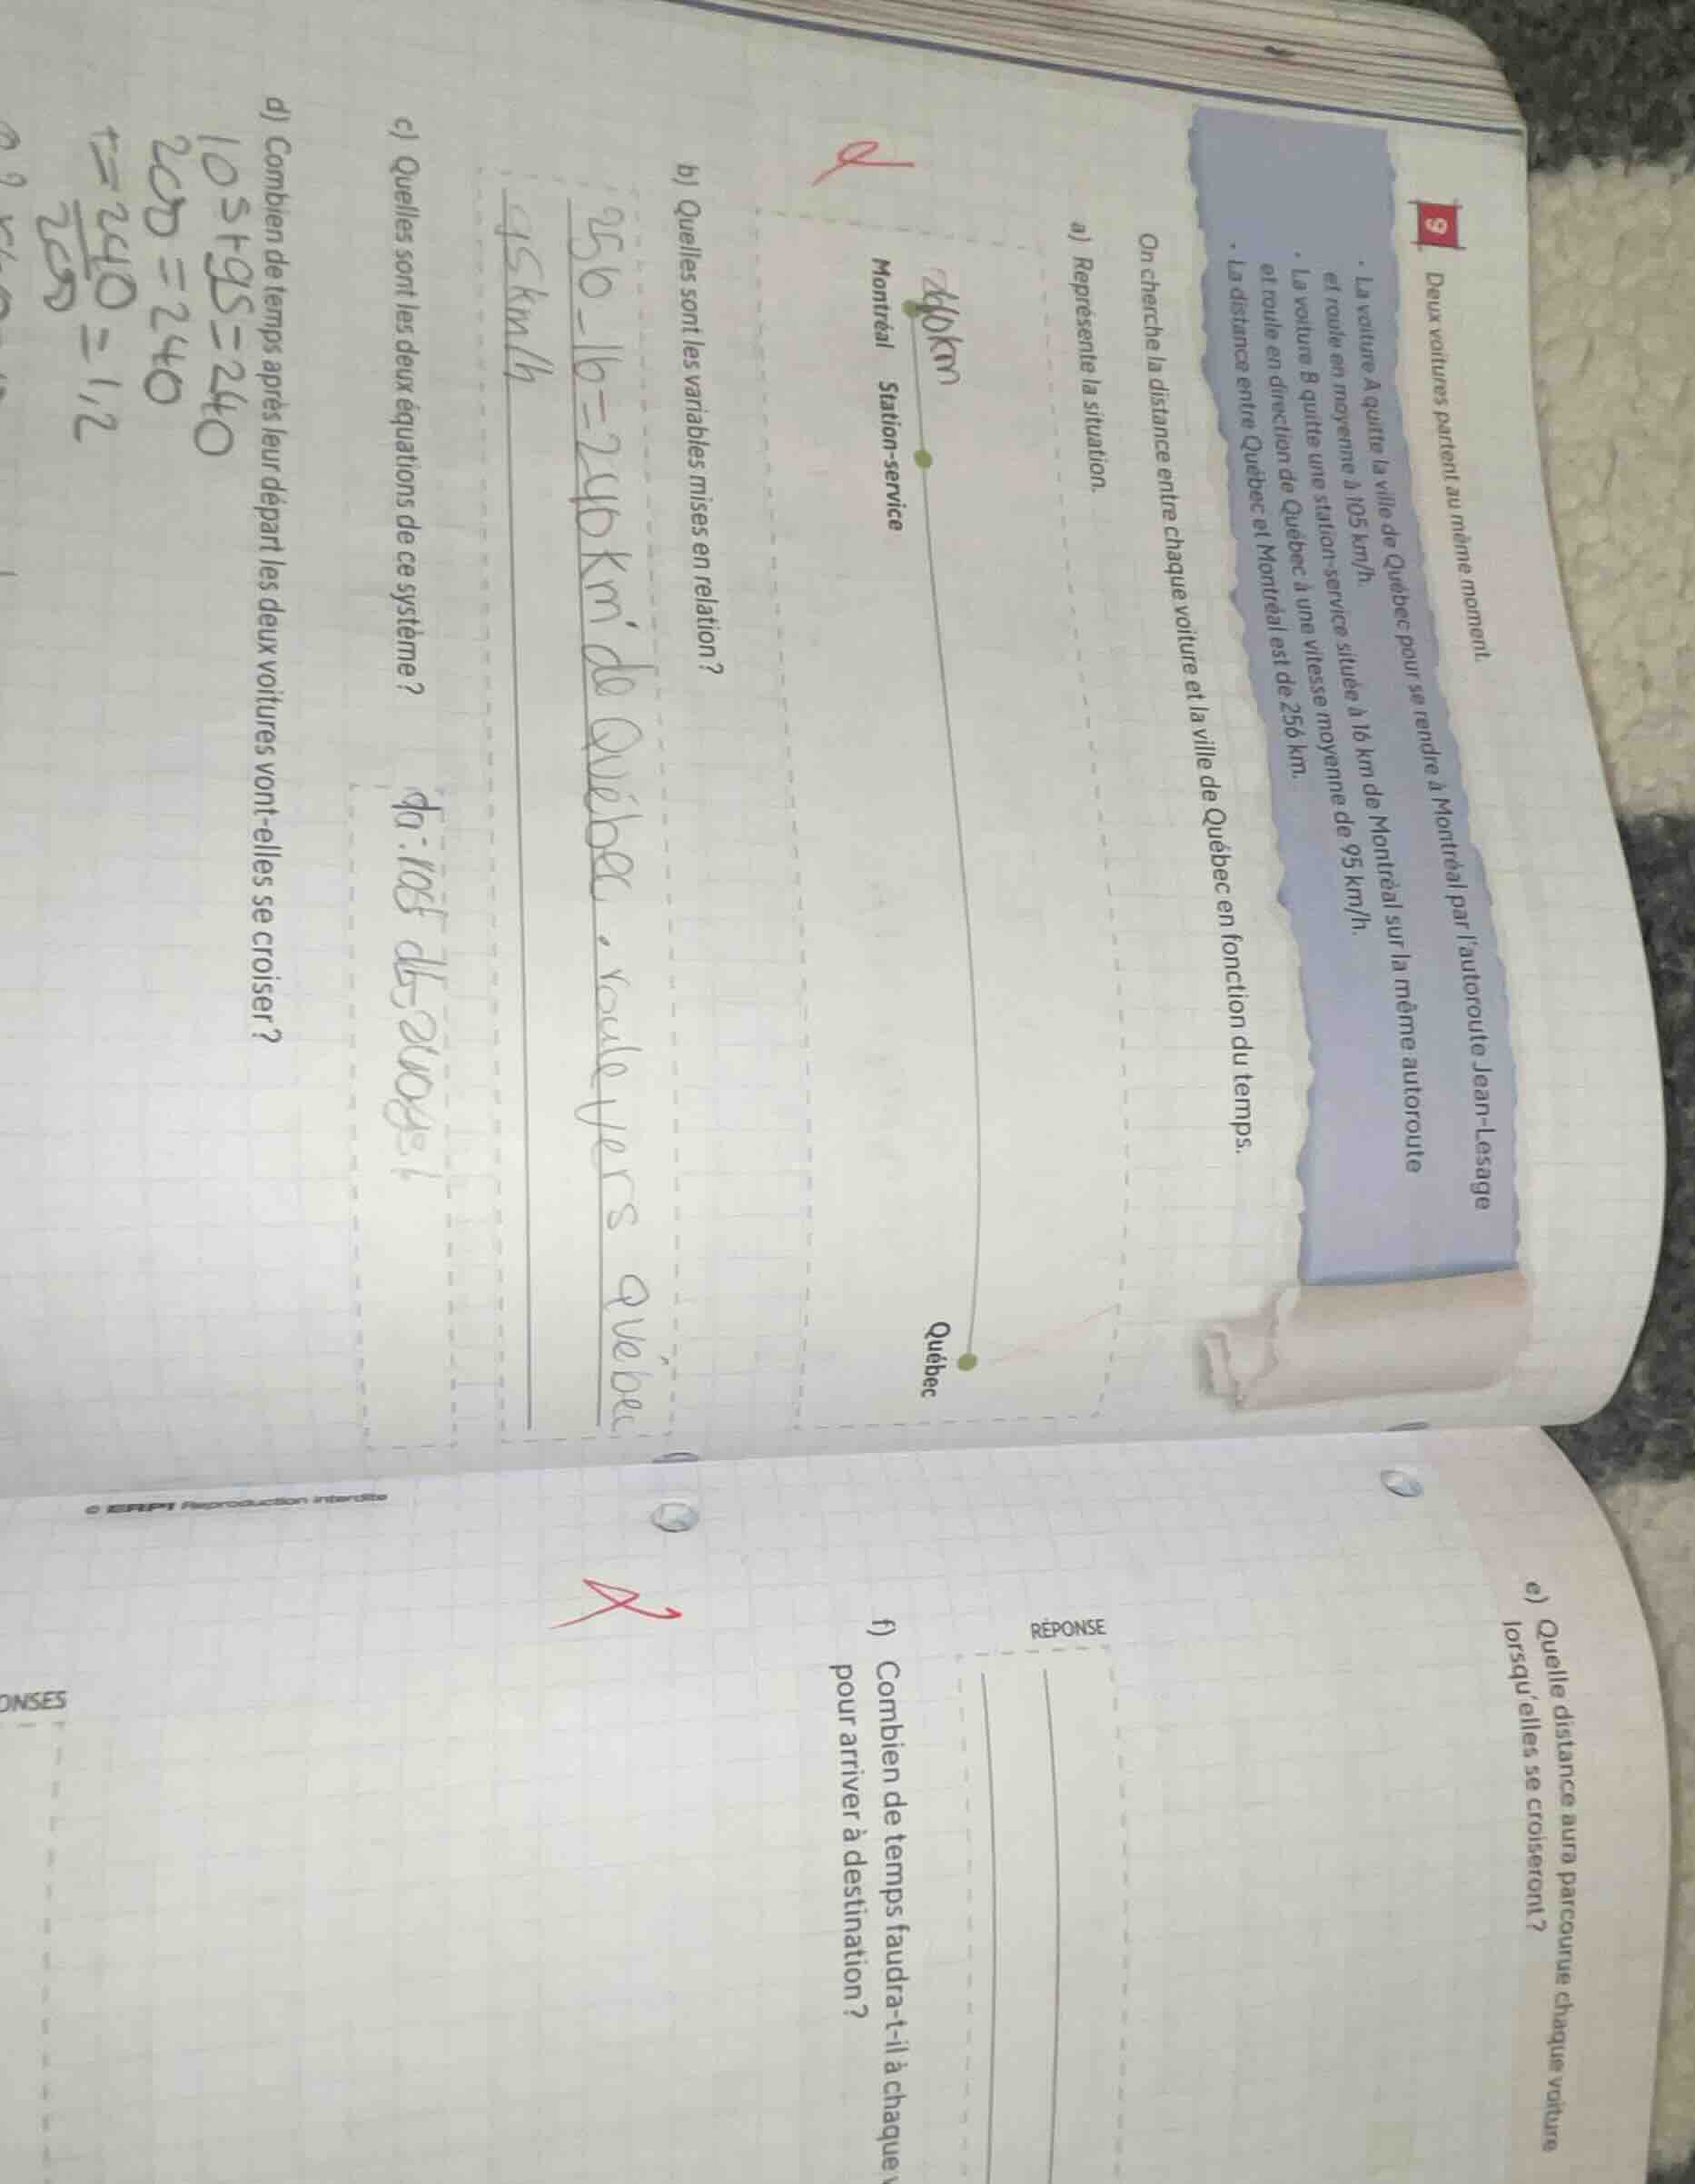 9 Deux voitures partent au même moment.
• La voiture A quitte la ville de Québec pour se rendre à Montréal par l'autoroute Jean-Lesage
et roule en moyenne à 105 km/h.
• La voiture B quitte une station-service située à 16 km de Montréal sur la même autoroute
et roule en direction de Québec à une vitesse moyenne de 95 km/h.
• La distance entre Québec et Montréal est de 256 km.
On cherche la distance entre chaque voiture et la ville de Québec en fonction du temps.
a) Représente la situation.
240km
Montréal Station-service Québec
b) Quelles sont les variables mises en relation?
256-16=240km de Québec. roule vers Québec
95km/h
c) Quelles sont les deux équations de ce système?
da:105t
d) Combien de temps après leur départ les deux voitures vont-elles se croiser?
105+95=240
200=240
t=240=1,2
200
© ERPI Reproduction interdite
e) Quelle distance aura parcourue chaque voiture
lorsqu'elles se croiseront?
RÉPONSE
f) Combien de temps faudra-t-il à chaque
pour arriver à destination?
ONSES